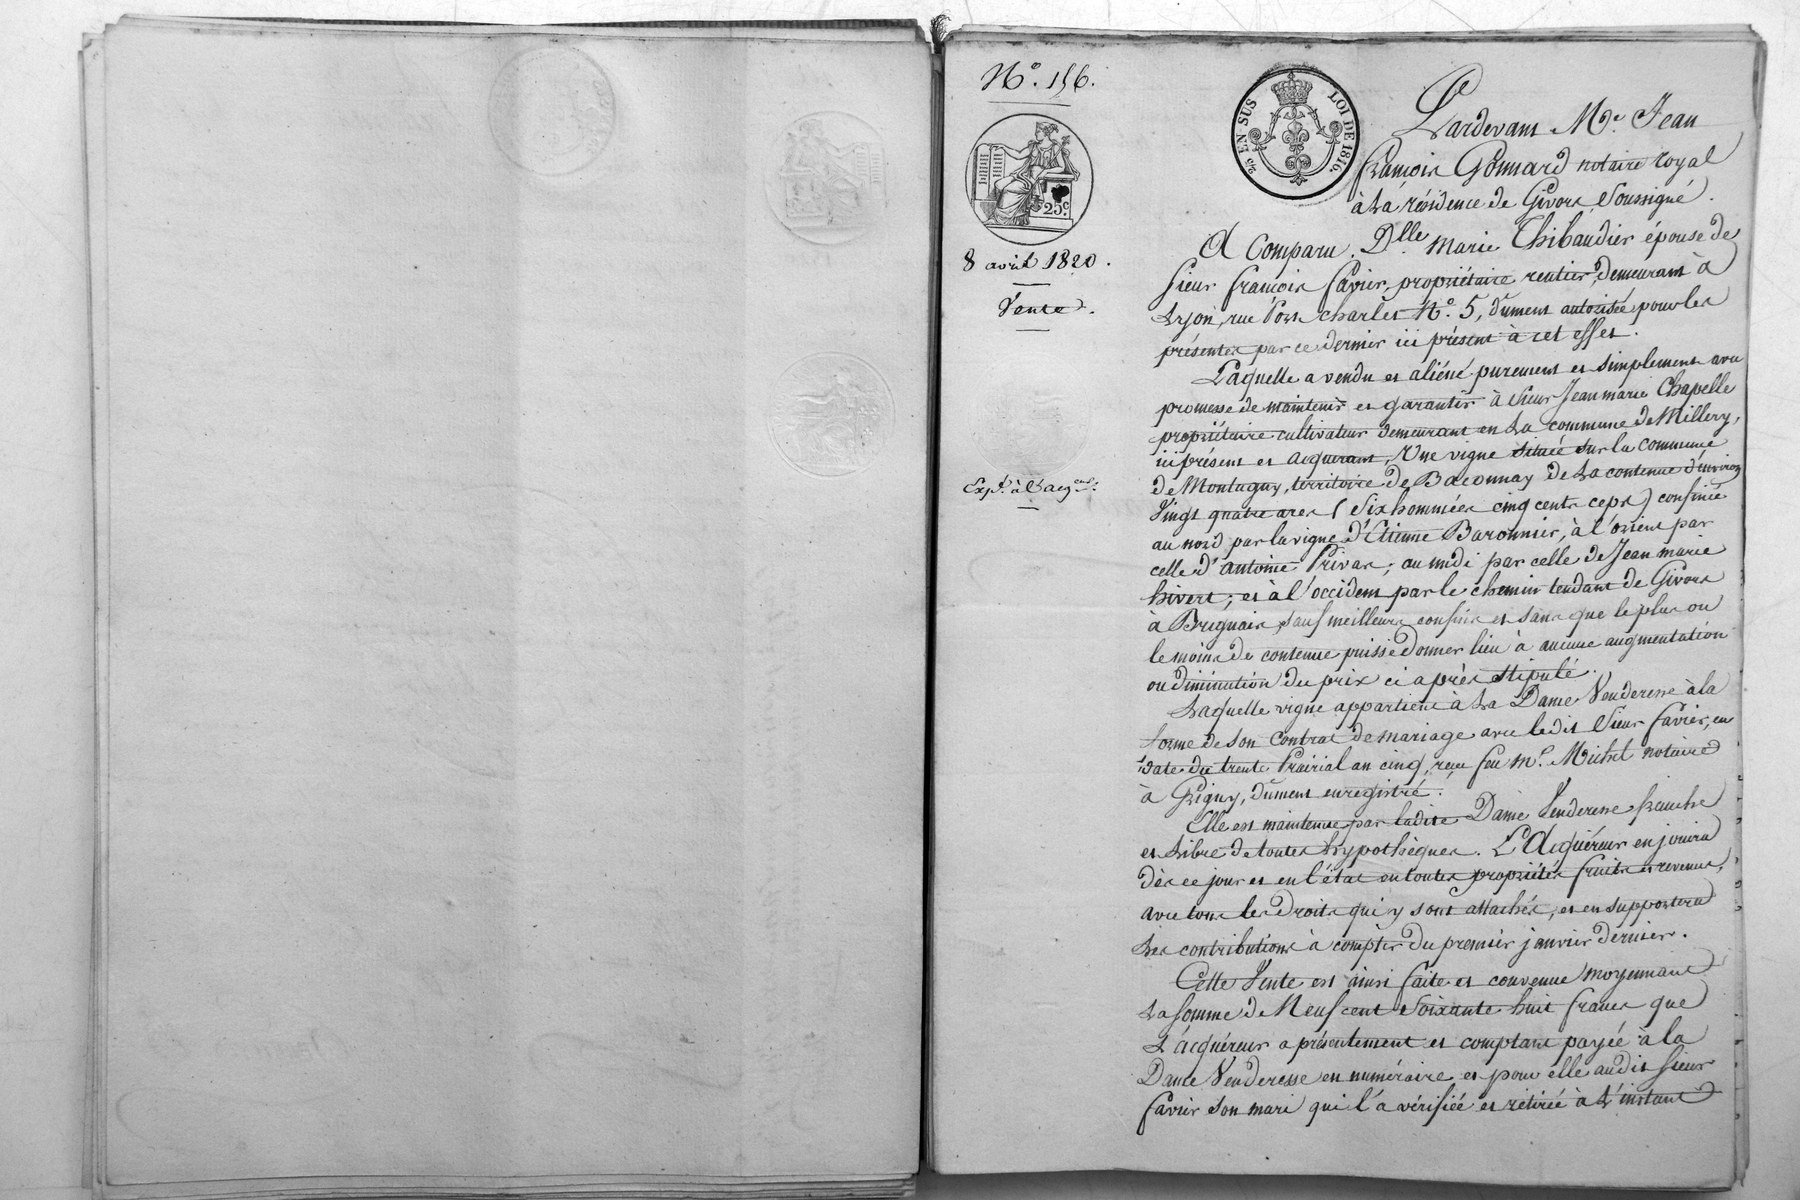 N.° 156.
2/10 EN SUS LOI DE 1816.
25.c
8 avril 1820.
Vente.
Exp.on à l'acq.eur.
Pardevant M.e Jean
françois Gonnard notaire royal
à la résidence de Givors, Soussigné.
A Comparu. D.lle Marie Thibaudier épouse de
sieur françois favier, propriétaire rentier, demeurant à
Lyon, rue Port charlet N.° 5, dument autorisée pour les
présentes par ce dernier ici présent à cet effet.
Laquelle a vendu et aliéné purement et simplement avec
promesse de maintenir et garantir à sieur Jean marie Chapelle
propriétaire cultivateur demeurant en la commune de Millery,
ici présent et acquerant, Une vigne située sur la commune
de Montagny, territoire de Baconnay de la contenue d'environ
Vingt quatre ares (Six hommées cinq cents ceps) confinée
au nord par la vigne d'Etienne Baronnier, à l'orient par
celle d'antoine Privas; au midi par celle de Jean marie
hivert; et à l'occident par le chemin tendant de Givors
à Brignais, sauf meilleurs confins et sans que le plus ou
le moins de contenue puisse donner lieu à aucune augmentation
ou diminution du prix ci après stipulé.
Laquelle vigne appartient à la Dame Venderesse à la
forme de son Contrat de mariage avec ledit Sieur favier, en
date du trente Prairial an cinq, reçu feu M.e Michel notaire
à Grigny, dument enregistré.
Elle est maintenue par ladite Dame Venderesse franche
et libre de toutes hypothèques. L'Acquéreur en jouira
dès ce jour et en l'état en toutes propriétés fruits et revenus,
avec tous les droits qui y sont attachés, et en supportera
les contributions à compter du premier janvier dernier.
Cette Vente est ainsi faite et convenue moyennant
la somme de Neuf cent soixante huit francs que
L'acquéreur a présentement et comptant payée à la
Dame Venderesse en numéraire et pour elle audit sieur
favier son mari qui l'a vérifiée et retirée à l'instant